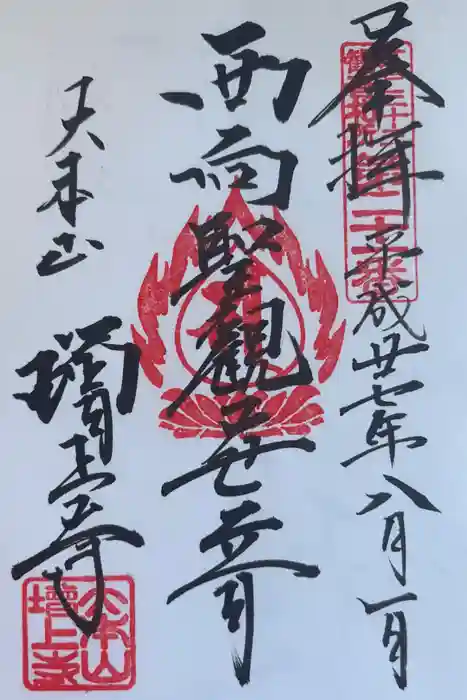 奉拝 平成廿七年八月一日
西向聖観世音
大本山 増上寺
大本山
増上寺